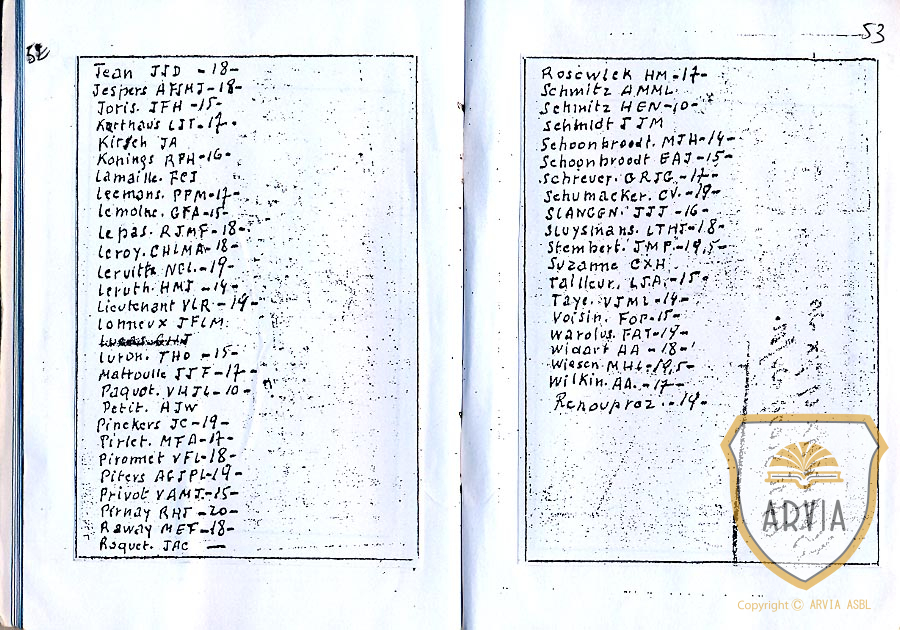 52
Jean JJD -18-
Jespers AFSMJ-18-
Joris. JFH -15-
Karthaus LJT-17-
Kirsch JA
Konings RPH-16-
Lamaille. FCJ
Leemans. PPM-17-
Lemoine. GFA-15-
Lepas. RJMF-18-
Leroy. CHLMA-18-
Leruitte NGL.-19-
Leruth. HMJ -14-
Lieutenant VLR -19-
Lonneux JFLM.
Luron. THO -15-
Mattoulle JJF-17-
Paquot. VHJL-10-
Petit. AJW
Pinckers JC-19-
Pirlet. MFA-17-
Piromet VFL-18-
Piters AGJPL-19-
Privot VAMJ-15-
Pirnay RHJ -20-
Raway MEF-18-
Roquet. JAC —
53
Roscwlek HM-17-
Schmitz AMML.
Schmitz HEN-10-
Schmidt JJM
Schoonbroodt. MJH-14-
Schoonbroodt EAJ-15-
Schreuer. GRJG-17-
Schumacker. CV.-19-
SLANGEN. JJJ -16-
Sluysmans. LTHJ-18-
Stembert. JMP.-19,5-
Suzanne CXH
Tailleur. LJA.-15-
Taye. VJML-14-
Voisin. FOP-15-
Warolus. FAT-19-
Widart AA -18-
Wiesen MHL-19,5-
Wilkin. AA. -17-
Renouproz. -19-
ARVIA
Copyright © ARVIA ASBL